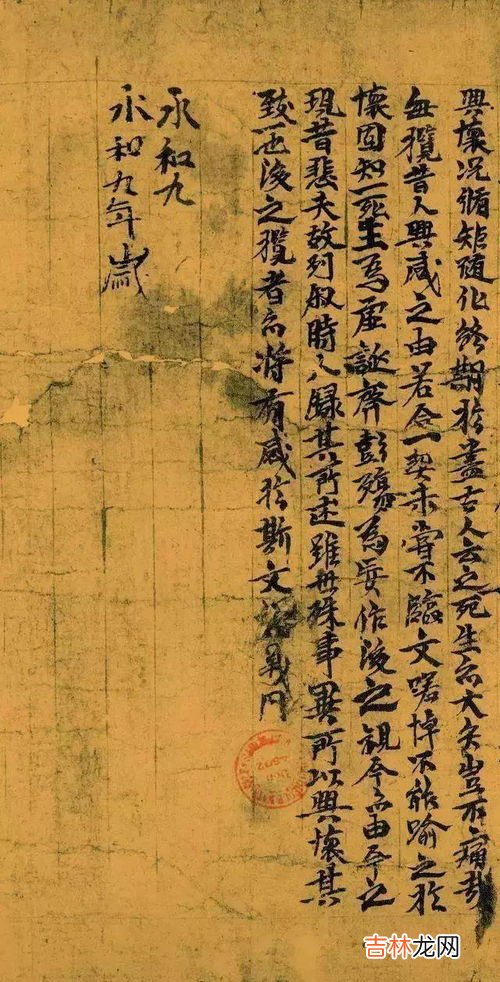 興懷况脩矩隨化終期於盡古人云之死生亦大矣豈不痛哉
每攬昔人興感之由若合一契未嘗不臨文嗟悼不能喻之於
懷固知一死生為虛誕齊彭殤為妄作後之視今亦由今之
現昔悲夫故列叙時人錄其所述雖世殊事異所以興懷其
致一也後之攬者亦將有感於斯文
永和九
永和九年歲
吉林龙网